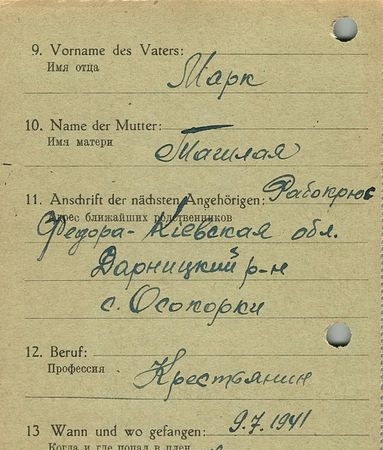 9. Vorname des Vaters:
Имя отца
Марк
10. Name der Mutter:
Имя матери
Ташлая
11. Anschrift der nächsten Angehörigen:
Адрес ближайших родственников
Федора - Кіевская обл.
Дарницкий р-н
с. Осокорки
12. Beruf:
Профессия
Крестьянин
13 Wann und wo gefangen: 9.7.1941
Когда и где попал в плен